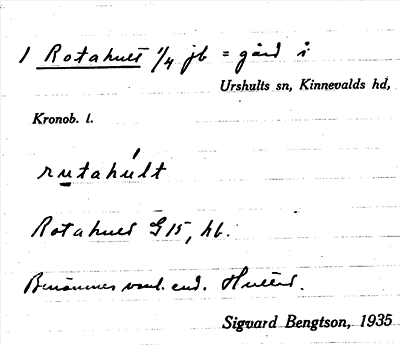 1 Rotahult 1/4 jb = gård i
Urshults sn, Kinnevalds hd,
Kronob. l.
rutahúlt
Rotahult G 15, hb.
Benämnes vanl. end. Hultet.
Sigvard Bengtson, 1935